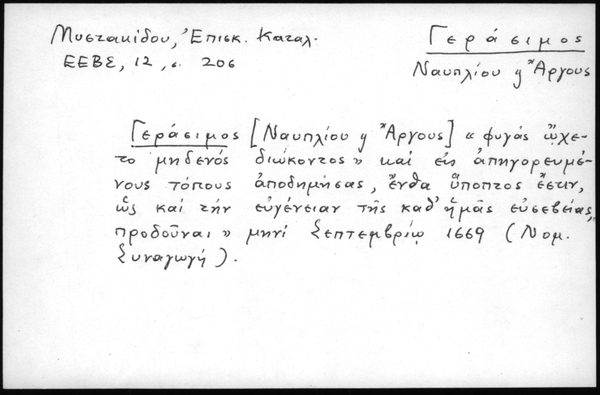 Μυστακίδου, Ἐπισκ. Καταλ.
ΕΕΒΣ, 12, σ. 206
Γεράσιμος
Ναυπλίου ἤ Ἄργους
Γεράσιμος [Ναυπλίου ἤ Ἄργους] « φυγάς ᾤχε-
το μηδενός διώκοντος » καί εἰς ἀπηγορευμέ-
νους τόπους ἀποδημήσας, ἔνθα ὕποπτος ἔστιν,
ὥς καί τήν εὐγένειαν τῆς καθ' ἡμᾶς εὐσεβείας,
προδοῦναι » μηνί Σεπτεμβρίῳ 1669 (Νομ.
Συναγωγή).